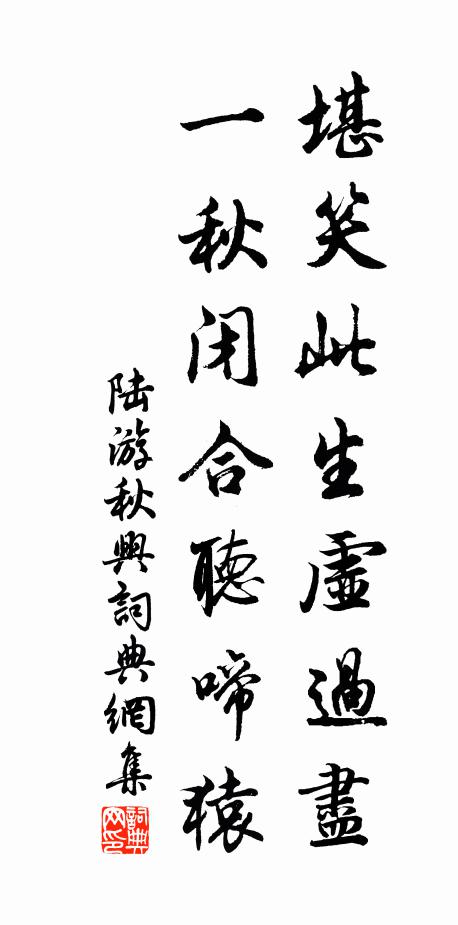 堪笑此生虛過盡
一秋闭合聽啼猿
陆游秋興詞典網集
詞典网印